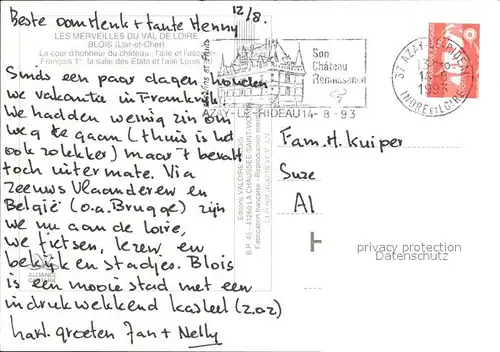 Beste oom Henk + tante Henny 12/8.
LES MERVEILLES DU VAL DE LOIRE
BLOIS (Loir-et-Cher)
La cour d'honneur du château : l'aile et l'escalier
François 1er, la salle des Etats et l'aile Louis
Sinds een paar dagen houden
we vakantie in Frankrijk
We hadden weinig zin om
weg te gaan (thuis is het
ook zo lekker) maar 't bevalt
toch uitermate. Via
Zeeuws Vlaanderen en
België (o.a. Brugge) zijn
we nu aan de Loire,
we fietsen, lezen en
bekijken stadjes. Blois
is een mooie stad met een
indrukwekkend kasteel (z.o.z)
hart. groeten Jan + Nelly
Son
Château
Renaissance
AZAY-LE-RIDEAU 14-8-93
37 AZAY-LE-RIDEAU
14-8
1993
INDRE et LOIRE
Fam. H. Kuiper
Suze
A1
Editions VALOIRE
B.P. 45 - 41260 LA CHAUSSEE-SAINT-VICTOR
Fabrication française - Reproduction interdite
ALLIANCE
privacy protection
Datenschutz